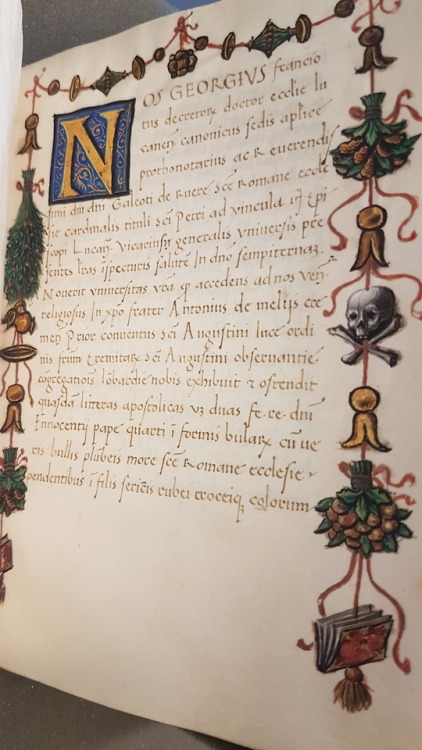 NOS GEORGIVS franciο
tus decretoꝝ doctor ecclie lu
caneñ canonicus sedis aplice
prothonotarius ac Reuerendiſ
simi dm̄ dm̄ Galeoti de Ruere Scẽ Romane eccle
sie cardinalis tituli Scĩ Petri ad vincula epi
scopi Lucañ. Vicariusqꝫ generalis vniuersis pre
sentes lr̃as īspecturis salutẽ In dño sempiternaꝫ.
Nouerit vniuersitas vr̃a ꝙ accedens ad nos veñ.
religiosus In xp̃o frater Antonius de meliis cre
meñ Prior conuentus Scĩ Augustini luce ordi
nis frum̃ Eremitarꝫ Scĩ Augustini obseruantie
cõgregatiois lõbardie nobis exhibuit ⁊ ostendit
quasdã litteras apostolicas vꝫ duas fe. re. dni
Innocentij pape quarti ī formis bularꝫ cũ ve
ris bullis plũbeis more scẽ Romane ecclesie
pendentibus ī filis sericis rubei croceiqꝫ colorum